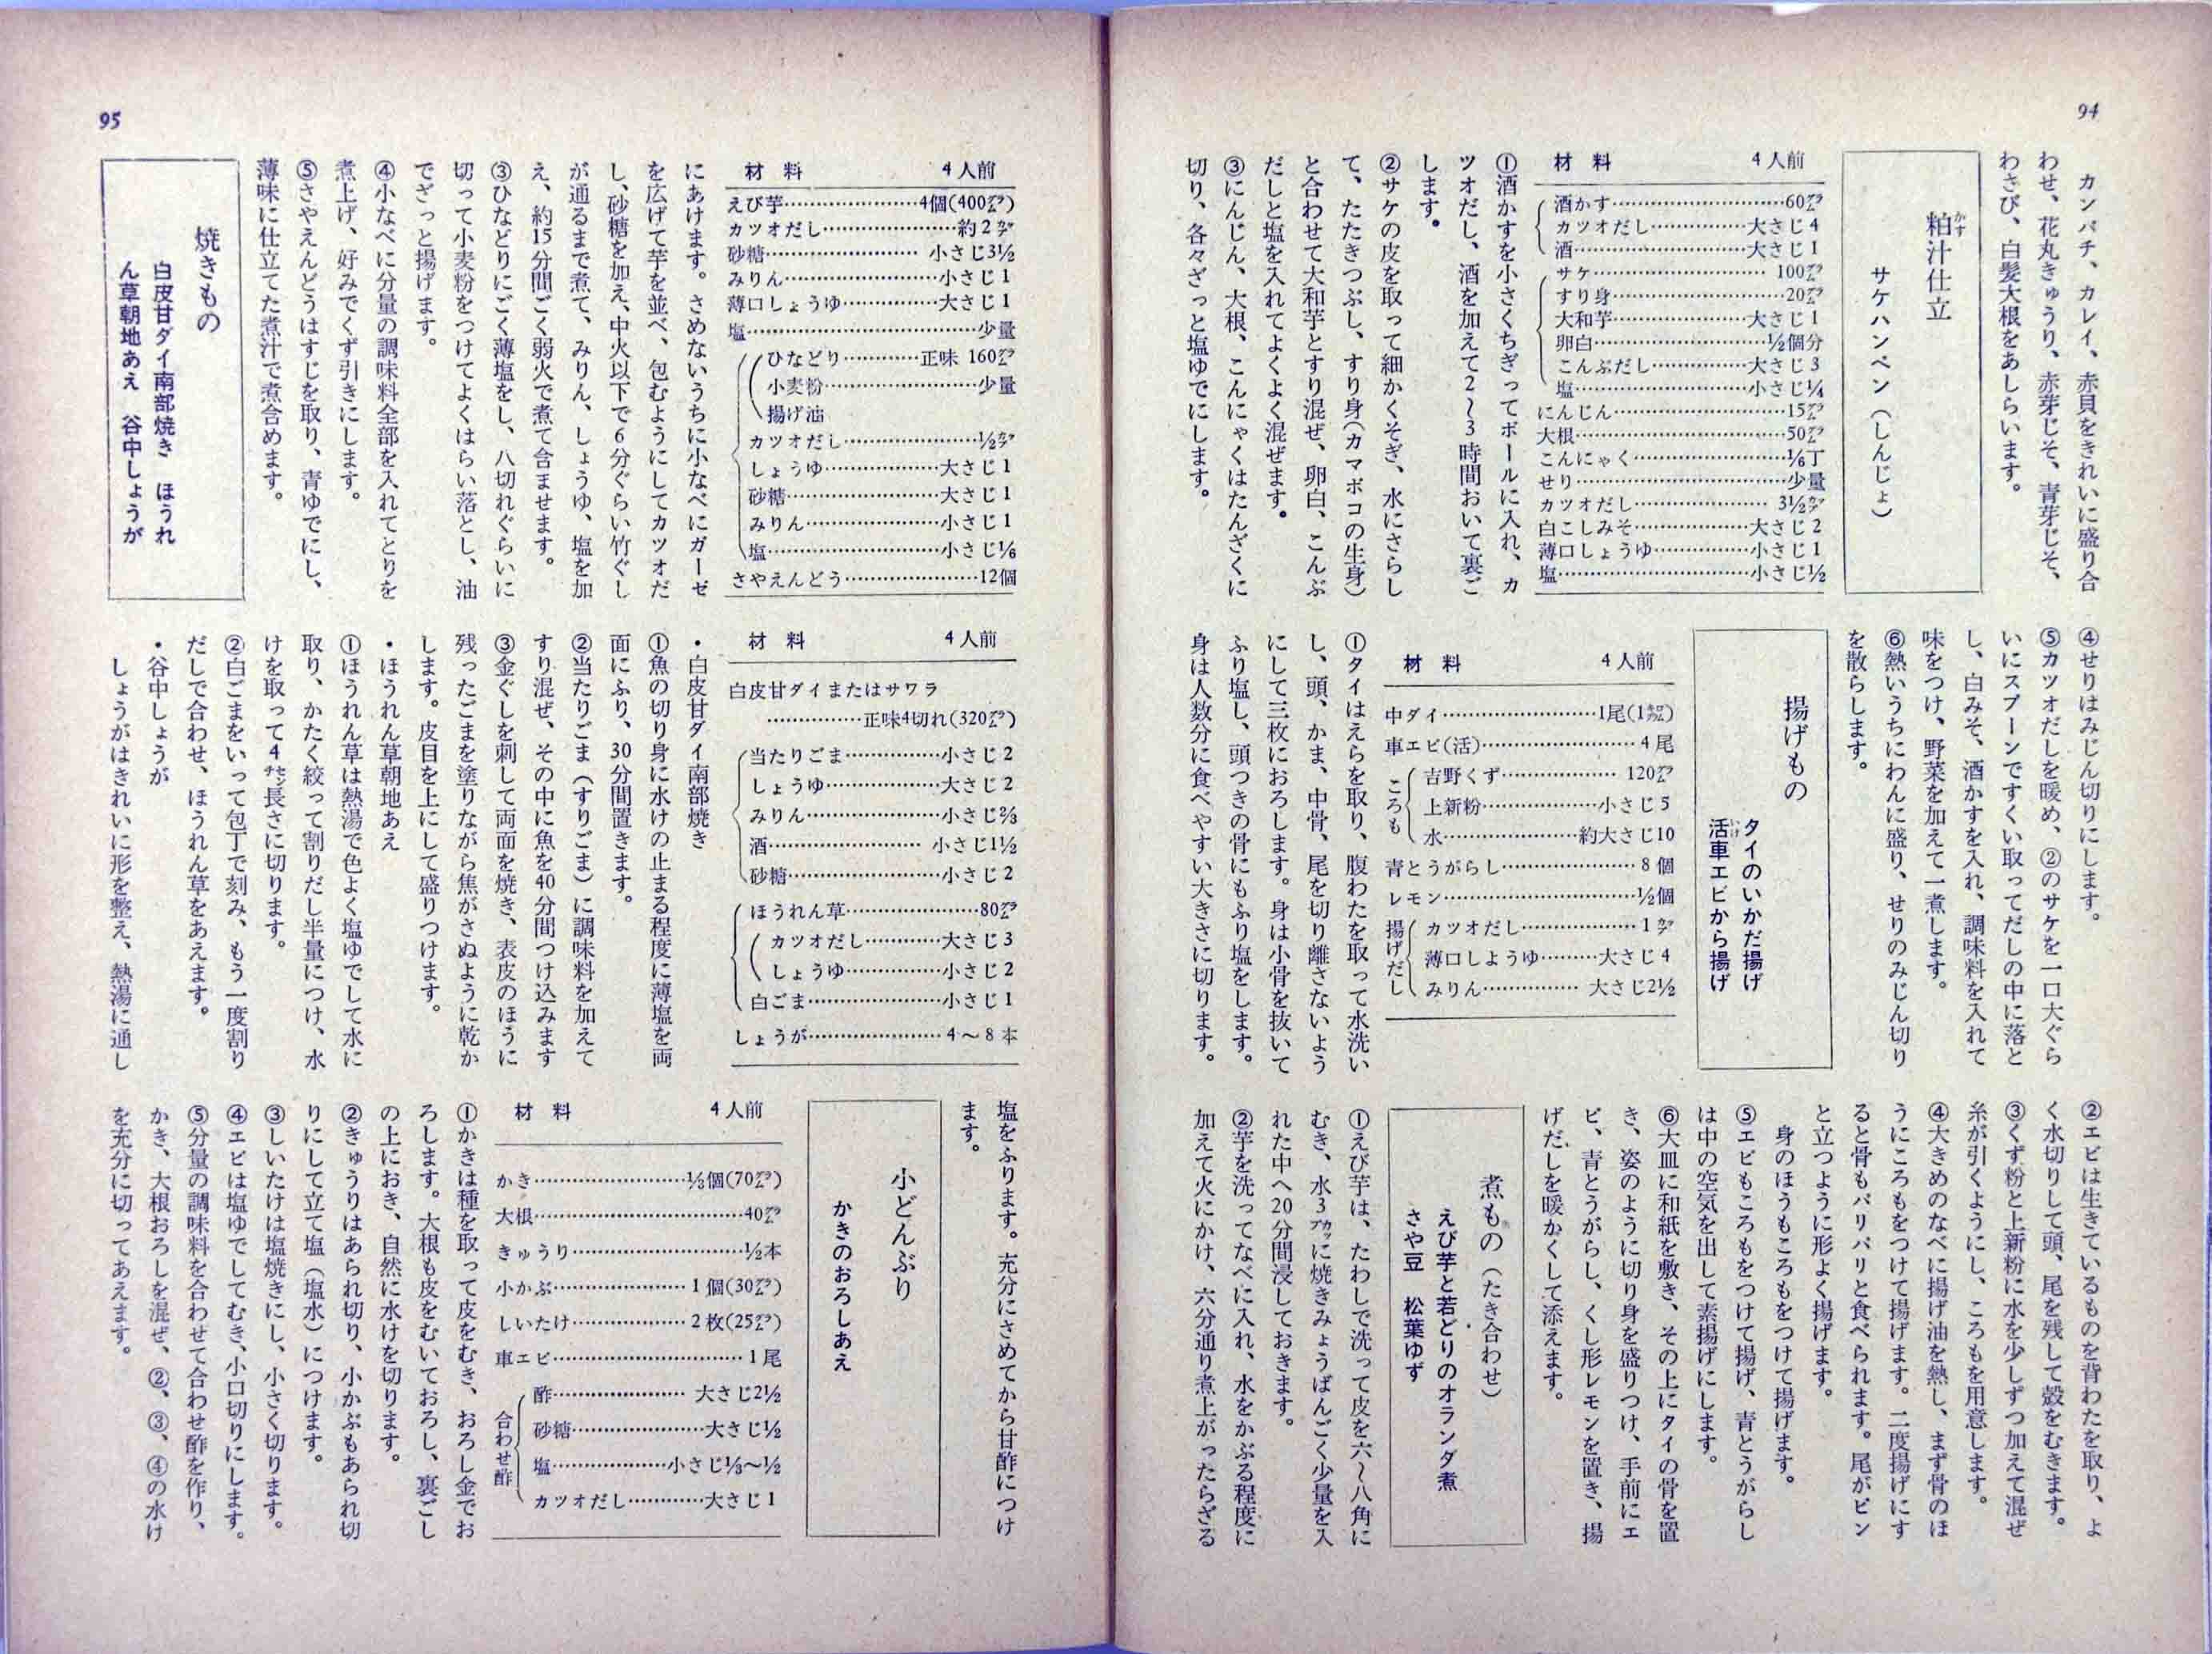 94
カンパチ、カレイ、赤貝をきれいに盛り合
わせ、花丸きゅうり、赤芽じそ、青芽じそ、
わさび、白髪大根をあしらいます。
粕汁仕立
かす
サケハンペン（しんじょ）
材料 4人前
酒かす…………60グラム
カツオだし…………大さじ4
酒…………大さじ1
サケ…………100グラム
すり身…………20グラム
大和芋…………大さじ1
卵白…………½個分
こんぶだし…………大さじ3
塩…………小さじ¼
にんじん…………15グラム
大根…………50グラム
こんにゃく…………⅙丁
せり…………少量
カツオだし…………3½カップ
白こしみそ…………大さじ2
薄口しょうゆ…………小さじ1
塩…………小さじ½
①酒かすを小さくちぎってボールに入れ、カ
ツオだし、酒を加えて2〜3時間おいて裏ご
します。
②サケの皮を取って細かくそぎ、水にさらし
て、たたきつぶし、すり身（カマボコの生身）
と合わせて大和芋とすり混ぜ、卵白、こんぶ
だしと塩を入れてよくよく混ぜます。
③にんじん、大根、こんにゃくはたんざくに
切り、各々ざっと塩ゆでにします。
④せりはみじん切りにします。
⑤カツオだしを暖め、②のサケを一口大ぐら
いにスプーンですくい取ってだしの中に落と
し、白みそ、酒かすを入れ、調味料を入れて
味をつけ、野菜を加えて一煮します。
⑥熱いうちにわんに盛り、せりのみじん切り
を散らします。
揚げもの
タイのいかだ揚げ
活車エビから揚げ
いけ
材料 4人前
中ダイ…………1尾(1キログラム)
車エビ(活)…………4尾
ころも
吉野くず…………120グラム
上新粉…………小さじ5
水…………約大さじ10
青とうがらし…………8個
レモン…………½個
揚げだし
カツオだし…………1カップ
薄口しようゆ…………大さじ4
みりん…………大さじ2½
①タイはえらを取り、腹わたを取って水洗い
し、頭、かま、中骨、尾を切り離さないよう
にして三枚におろします。身は小骨を抜いて
ふり塩し、頭つきの骨にもふり塩をします。
身は人数分に食べやすい大きさに切ります。
②エビは生きているものを背わたを取り、よ
く水切りして頭、尾を残して殻をむきます。
③くず粉と上新粉に水を少しずつ加えて混ぜ
糸が引くようにし、ころもを用意します。
④大きめのなべに揚げ油を熱し、まず骨のほ
うにころもをつけて揚げます。二度揚げにす
ると骨もパリパリと食べられます。尾がピン
と立つように形よく揚げます。
身のほうもころもをつけて揚げます。
⑤エビもころもをつけて揚げ、青とうがらし
は中の空気を出して素揚げにします。
⑥大皿に和紙を敷き、その上にタイの骨を置
き、姿のように切り身を盛りつけ、手前にエ
ビ、青とうがらし、くし形レモンを置き、揚
げだしを暖かくして添えます。
煮もの（たき合わせ）
えび芋と若どりのオランダ煮
さや豆　松葉ゆず
①えび芋は、たわしで洗って皮を六〜八角に
むき、水3カップに焼きみょうばんごく少量を入
れた中へ20分間浸しておきます。
②芋を洗ってなべに入れ、水をかぶる程度に
加えて火にかけ、六分通り煮上がったらざる
95
材料 4人前
えび芋…………4個(400グラム)
カツオだし…………約2カップ
砂糖…………小さじ3½
みりん…………小さじ1
薄口しょうゆ…………大さじ1
塩…………少量
ひなどり…………正味 160グラム
小麦粉…………少量
揚げ油
カツオだし…………½カップ
しょうゆ…………大さじ1
砂糖…………大さじ1
みりん…………小さじ1
塩…………小さじ⅙
さやえんどう…………12個
にあけます。さめないうちに小なべにガーゼ
を広げて芋を並べ、包むようにしてカツオだ
し、砂糖を加え、中火以下で6分ぐらい竹ぐし
が通るまで煮て、みりん、しょうゆ、塩を加
え、約15分間ごく弱火で煮て合ませます。
③ひなどりにごく薄塩をし、八切れぐらいに
切って小麦粉をつけてよくはらい落とし、油
でざっと揚げます。
④小なべに分量の調味料全部を入れてとりを
煮上げ、好みでくず引きにします。
⑤さやえんどうはすじを取り、青ゆでにし、
薄味に仕立てた煮汁で煮含めます。
焼きもの
白皮甘ダイ南部焼き　ほうれ
ん草朝地あえ　谷中しょうが
材料 4人前
白皮甘ダイまたはサワラ
…………正味4切れ(320グラム)
当たりごま…………小さじ2
しょうゆ…………大さじ2
みりん…………小さじ⅔
酒…………小さじ1½
砂糖…………小さじ2
ほうれん草…………80グラム
カツオだし…………大さじ3
しょうゆ…………小さじ2
白ごま…………小さじ1
しょうが…………4〜8本
・白皮甘ダイ南部焼き
①魚の切り身に水けの止まる程度に薄塩を両
面にふり、30分間置きます。
②当たりごま（すりごま）に調味料を加えて
すり混ぜ、その中に魚を40分間つけ込みます
③金ぐしを刺して両面を焼き、表皮のほうに
残ったごまを塗りながら焦がさぬように乾か
します。皮目を上にして盛りつけます。
・ほうれん草朝地あえ
①ほうれん草は熱湯で色よく塩ゆでして水に
取り、かたく絞って割りだし半量につけ、水
けを取って4センチ長さに切ります。
②白ごまをいって包丁で刻み、もう一度割り
だしで合わせ、ほうれん草をあえます。
・谷中しょうが
しょうがはきれいに形を整え、熱湯に通し
塩をふります。充分にさめてから甘酢につけ
ます。
小どんぶり
かきのおろしあえ
材料 4人前
かき…………⅓個(70グラム)
大根…………40グラム
きゅうり…………½本
小かぶ…………1個(30グラム)
しいたけ…………2枚(25グラム)
車エビ…………1尾
合わせ酢
酢…………大さじ2½
砂糖…………大さじ½
塩…………小さじ⅓〜½
カツオだし…………大さじ1
①かきは種を取って皮をむき、おろし金でお
ろします。大根も皮をむいておろし、裏ごし
の上におき、自然に水けを切ります。
②きゅうりはあられ切り、小かぶもあられ切
りにして立て塩（塩水）につけます。
③しいたけは塩焼きにし、小さく切ります。
④エビは塩ゆでしてむき、小口切りにします。
⑤分量の調味料を合わせて合わせ酢を作り、
かき、大根おろしを混ぜ、②、③、④の水け
を充分に切ってあえます。